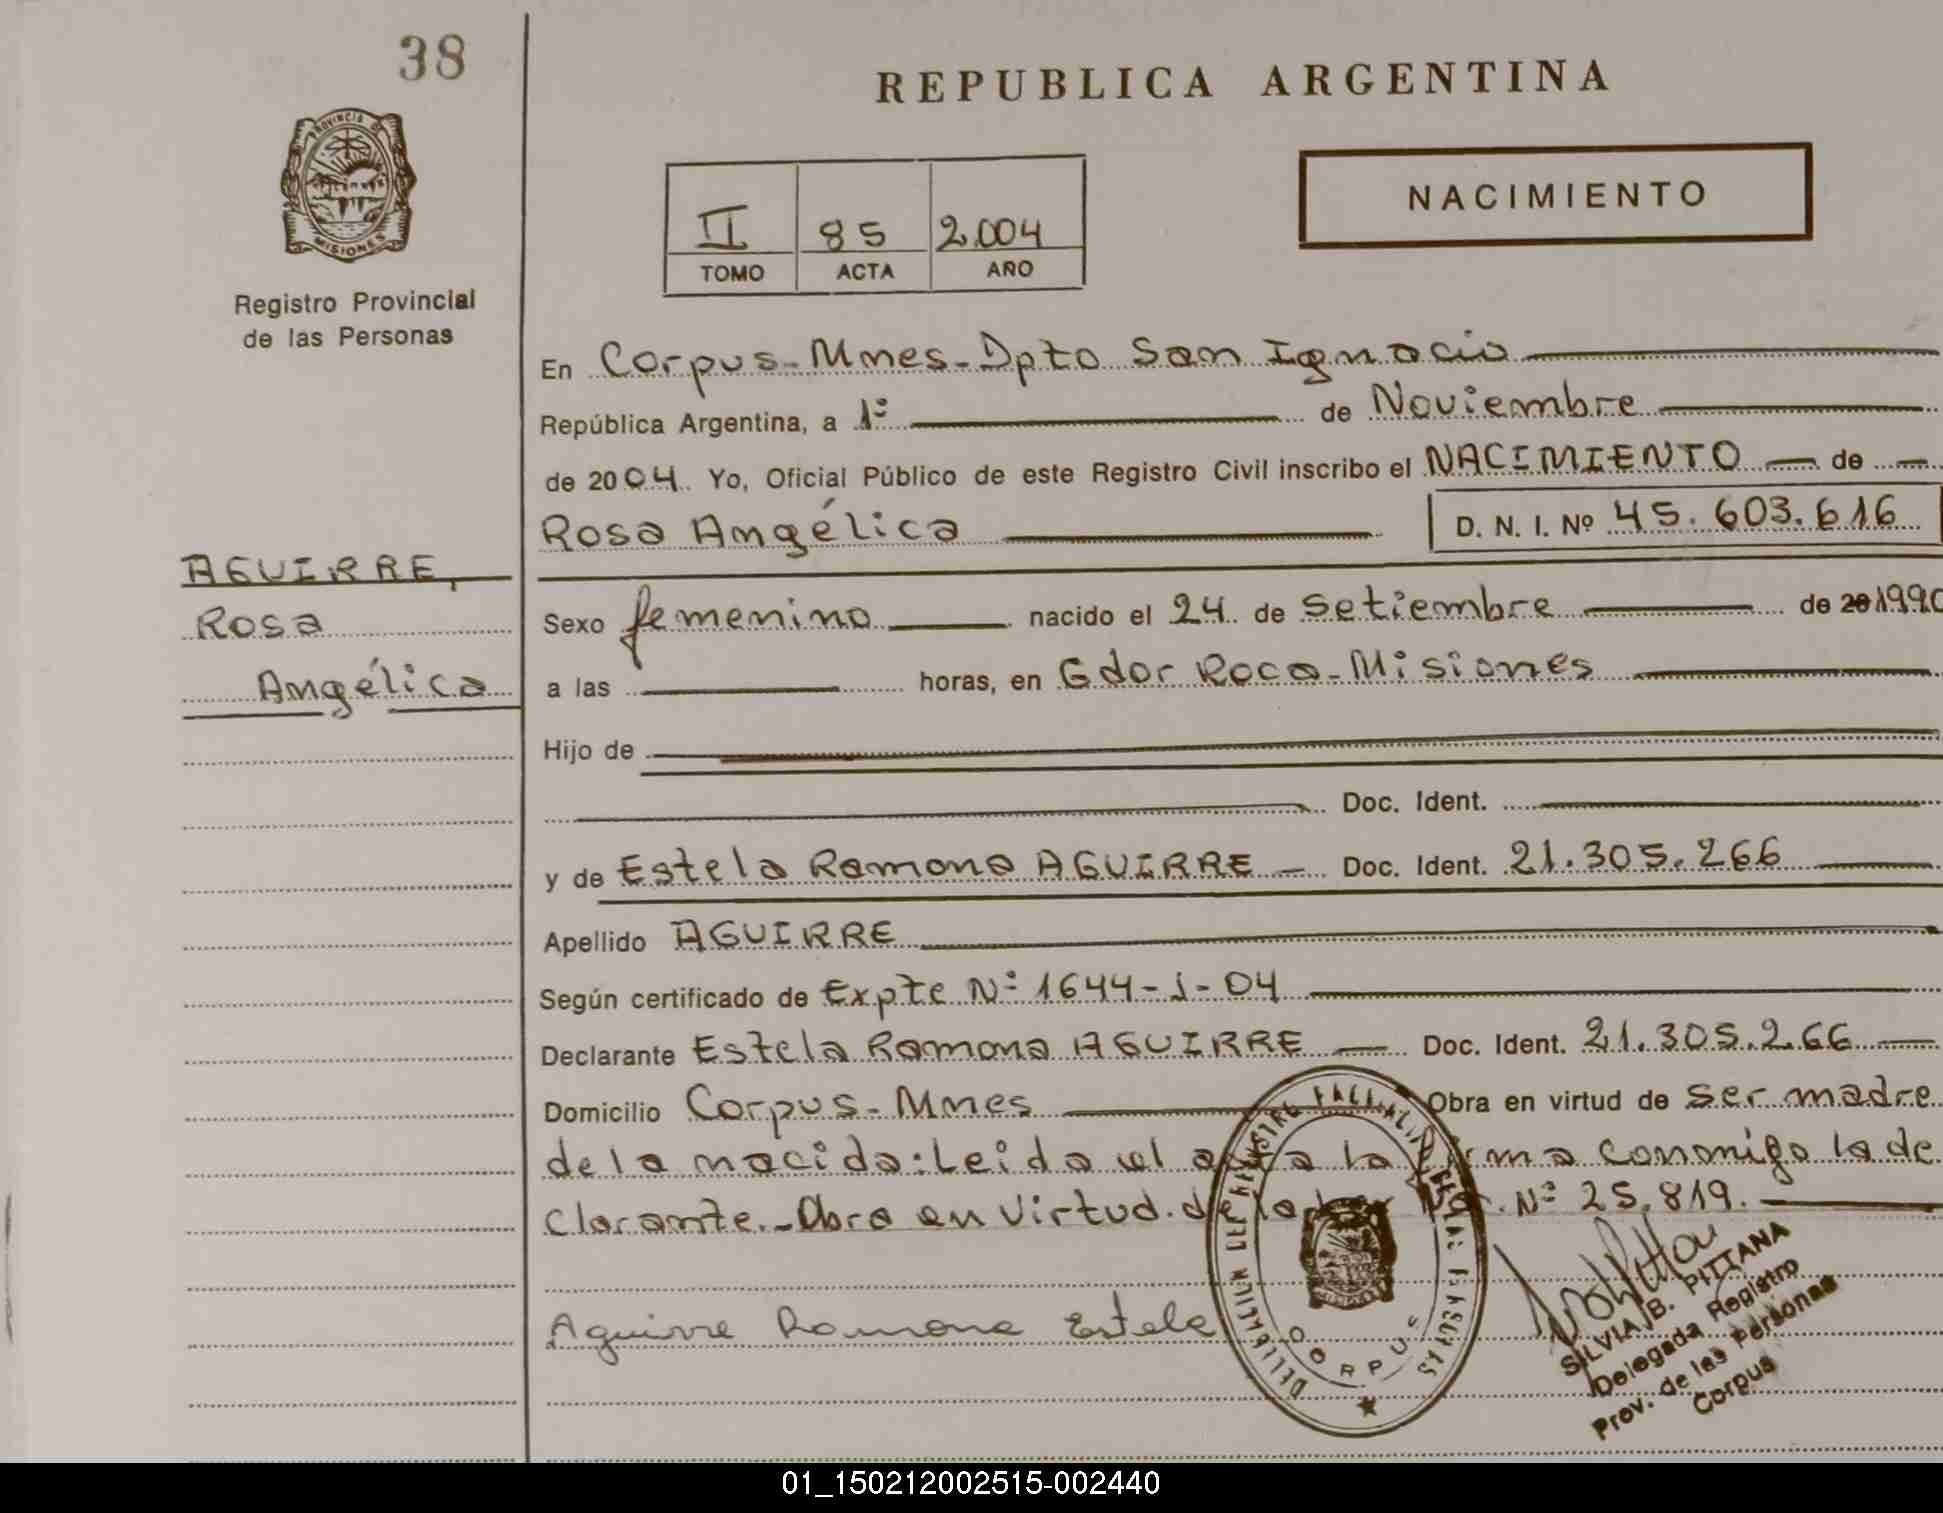 38
REPUBLICA ARGENTINA
PROVINCIA DE
MISIONES
Registro Provincial
de las Personas
II 85 2.004
TOMO ACTA AÑO
NACIMIENTO
En Corpus-Mnes-Dpto San Ignacio
República Argentina, a 1º de Noviembre
de 2004. Yo, Oficial Público de este Registro Civil inscribo el NACIMIENTO de
Rosa Angélica D. N. I. Nº 45.603.616
AGUIRRE,
Rosa
Angélica
Sexo femenino nacido el 24 de Setiembre de 20 1990
a las horas, en Gdor Roca-Misiones
Hijo de
Doc. Ident.
y de Estela Ramona AGUIRRE Doc. Ident. 21.305.266
Apellido AGUIRRE
Según certificado de Expte Nº 1644-J-04
Declarante Estela Ramona AGUIRRE Doc. Ident. 21.305.266
Domicilio Corpus-Mnes Obra en virtud de ser madre
de la nacida: Leida el acta la firma conmigo la de
clarante.-Obra en virtud. de la Nº 25.819.
Aguirre Ramona Estela
CORPUS
SILVIA B. PITTANA
Delegada Registro
Prov. de las Personas
Corpus
01_150212002515-002440